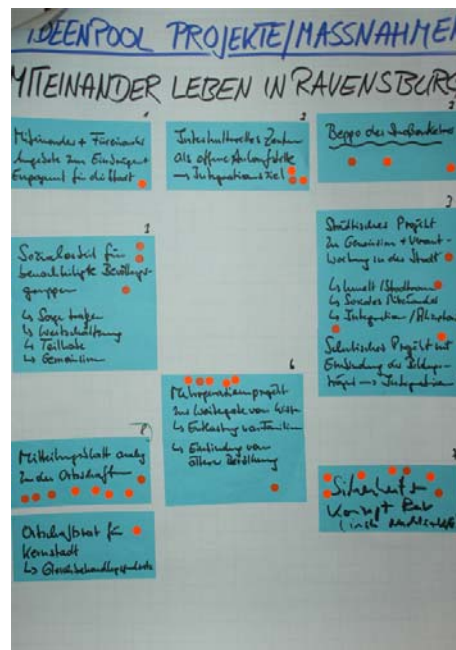 IDEENPOOL PROJEKTE/MASSNAHMEN
MITEINANDER LEBEN IN RAVENSBURG
1
Miteinander + Füreinander
Angebote zum
Engagement für die Stadt
3
Interkulturelles Zentrum
als offene Anlaufstelle
→ Integrationsziel
Beppo der Straßenkehrer
3
Sozialarbeit für
benachteiligte
gruppen
↳ Sorge tragen
↳ Wertschätzung
↳ Teilhabe
↳ Gemeinsinn
3
Städtisches Projekt
zu Gemeinsinn + Verant-
wortung in der Stadt
↳ Umwelt / Stadtraum
↳ Soziales Miteinander
↳ Integration /
Projekt mit
Einbindung der
→ Integration
6
Mehrgenerationenprojekt
zur Weitergabe von Wissen
↳ Entlastung von Familien
↳ Einbindung von
älterer Bevölkerung
Mitteilungsblatt analog
zu den Ortschaften
Ortschaftsrat für
Kernstadt
↳
Sicherheits-
Konzept